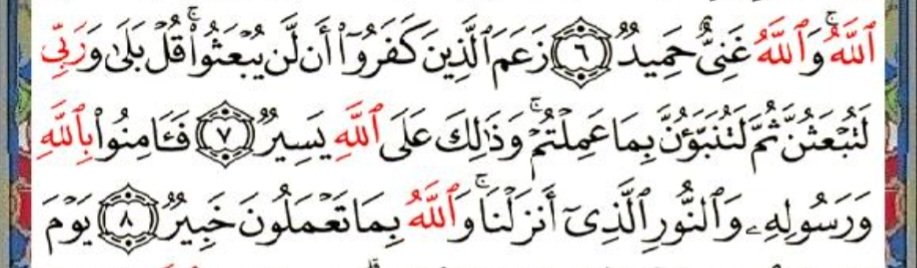 ٱللَّهُۚ وَٱللَّهُ غَنِىٌّ حَمِيدٌ ٦ زَعَمَ ٱلَّذِينَ كَفَرُوٓا۟ أَن لَّن يُبْعَثُوا۟ۚ قُلْ بَلَىٰ وَرَبِّى
لَتُبْعَثُنَّ ثُمَّ لَتُنَبَّؤُنَّ بِمَا عَمِلْتُمْۚ وَذَٰلِكَ عَلَى ٱللَّهِ يَسِيرٌ ٧ فَـَٔامِنُوا۟ بِٱللَّهِ
وَرَسُولِهِۦ وَٱلنُّورِ ٱلَّذِىٓ أَنزَلْنَاۚ وَٱللَّهُ بِمَا تَعْمَلُونَ خَبِيرٌ ٨ يَوْمَ